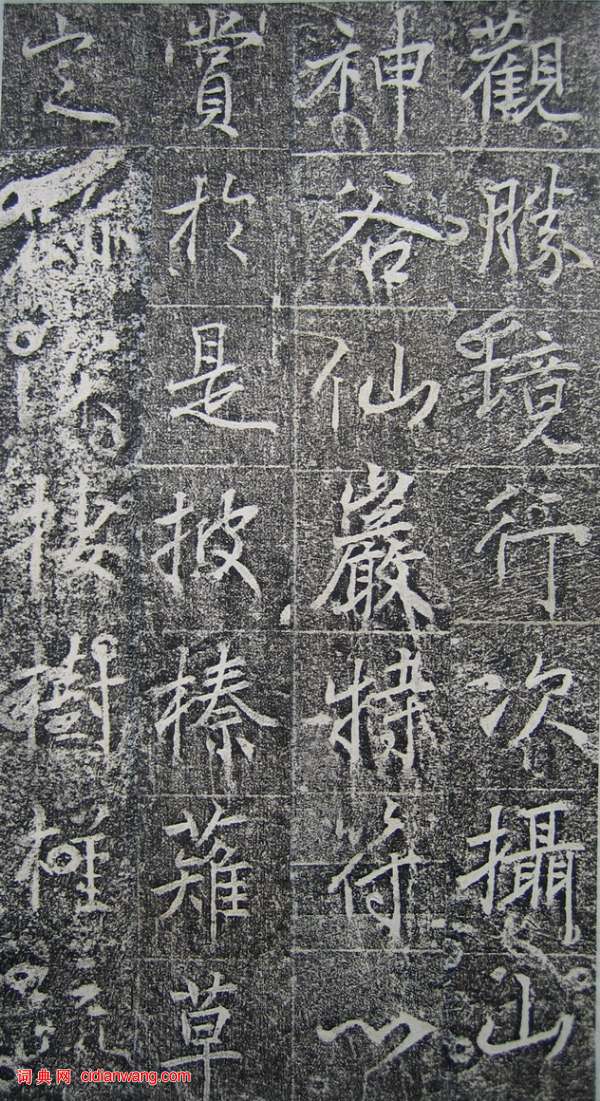 觀勝境行次攝山
神谷仙巖特符心
賞於是披榛薙草
定棲樹槿
词典网 cidianwang.com